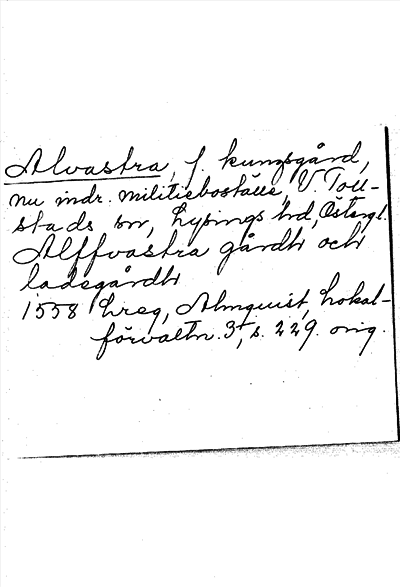 Alvastra, f. kungsgård,
nu indr. militieboställe, V. Toll-
stads sn, Lysings hd, Östergl.
Alffvastra gårdh och
ladegårdh
1558 hreg, Almquist, Lokal-
förvaltn. 3, s. 229. orig.